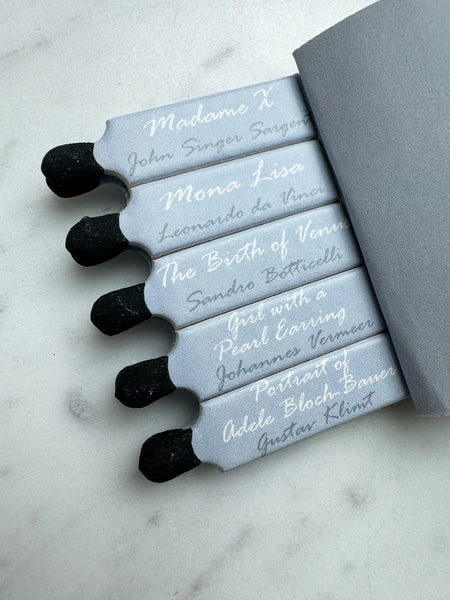 Madame X
John Singer Sargen
Mona Lisa
Leonardo da Vinci
The Birth of Venu
Sandro Botticelli
Girl with a
Pearl Earring
Johannes Vermeer
Portrait of
Adele Bloch-Bauer
Gustav Klimt